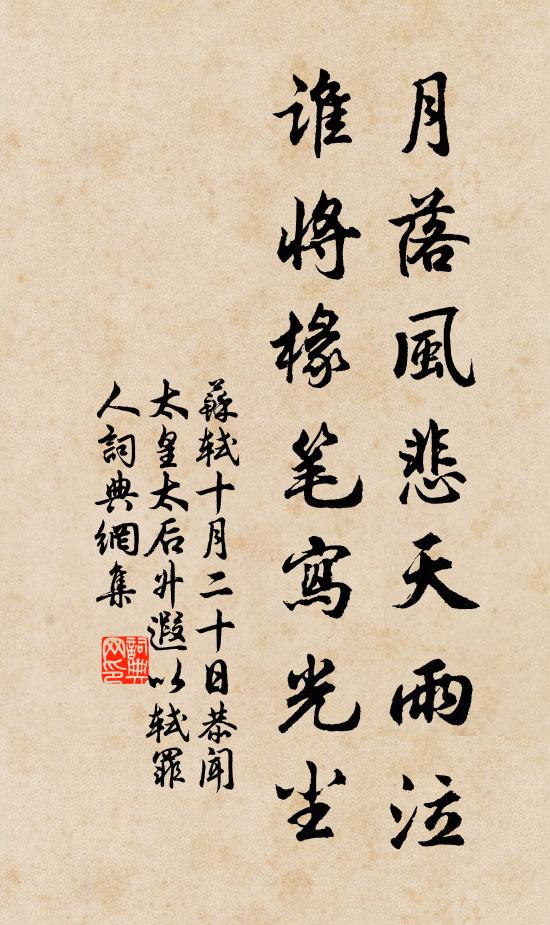 月落風悲天雨泣
誰將椽笔寫光尘
蘇軾十月二十日恭聞
太皇太后升遐以軾罪
人詞典網集
詞典网印